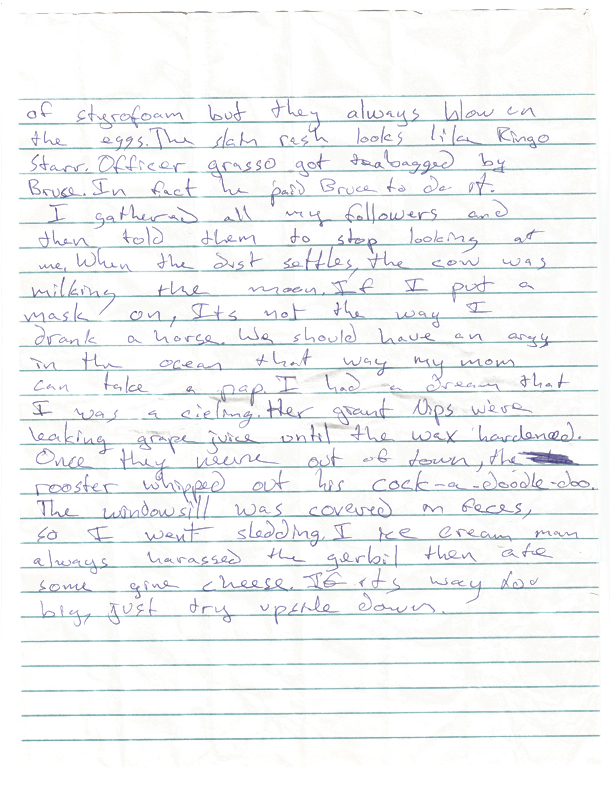 of styrofoam but they always blow on
the eggs. The slam rash looks like Ringo
Starr. Officer grasso got teabagged by
Bruce. In fact he paid Bruce to do it.
I gathered all my followers and
then told them to stop looking at
me. When the dust settles, the cow was
milking the moon. If I put a
mask on, Its not the way I
drank a horse. We should have an orgy
in the ocean that way my mom
can take a nap. I had a dream that
I was a cieling. Her giant Nips were
leaking grape juice until the wax hardened.
Once they were out of town, the
rooster whipped out his cock-a-doodle-doo.
The windowsill was covered in feces,
so I went sledding. I ice cream man
always harassed the gerbil then ate
some give cheese. If its way too
big, just try upside down.